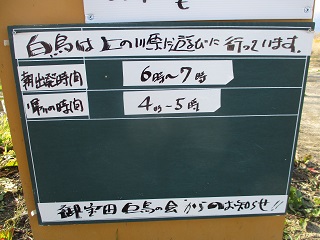 も
白鳥は上の川原に遊びに行っています。
朝出発時間 6時〜7時
帰りの時間 4時〜5時
御宝田白鳥の会からのお知らせ!!